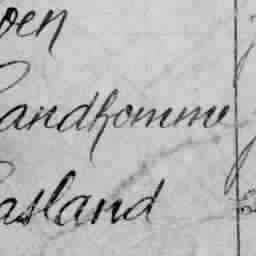 oen
andhomme
asland